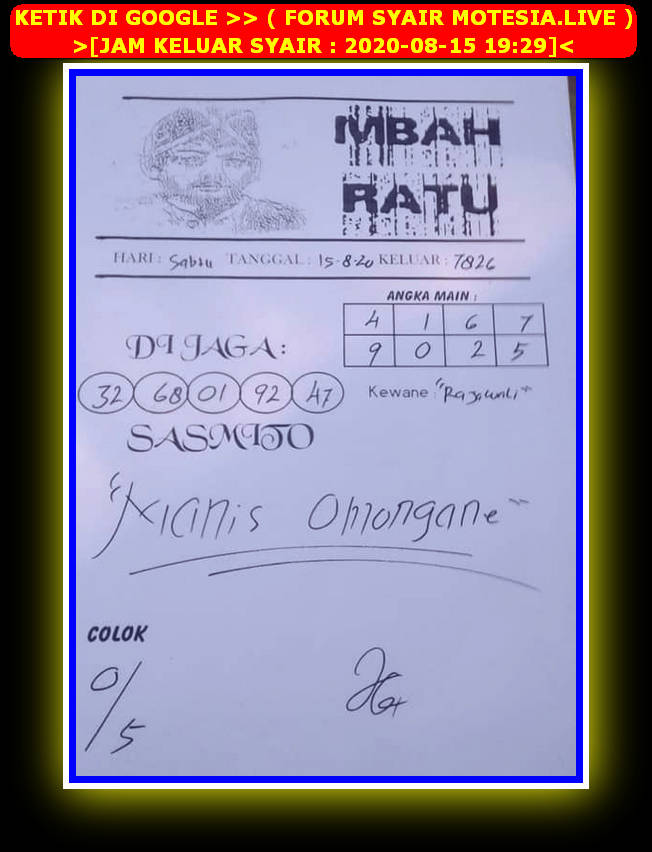 KETIK DI GOOGLE >> ( FORUM SYAIR MOTESIA.LIVE )
>[JAM KELUAR SYAIR : 2020-08-15 19:29]<
MBAH
RATU
HARI : Sabtu TANGGAL : 15-8-20 KELUAR : 7826
ANGKA MAIN :
4 1 6 7
9 0 2 5
DI JAGA :
32 68 01 92 47
Kewane : "Rajawali"
SASMITO
"Manis Omongane"
COLOK
0/5